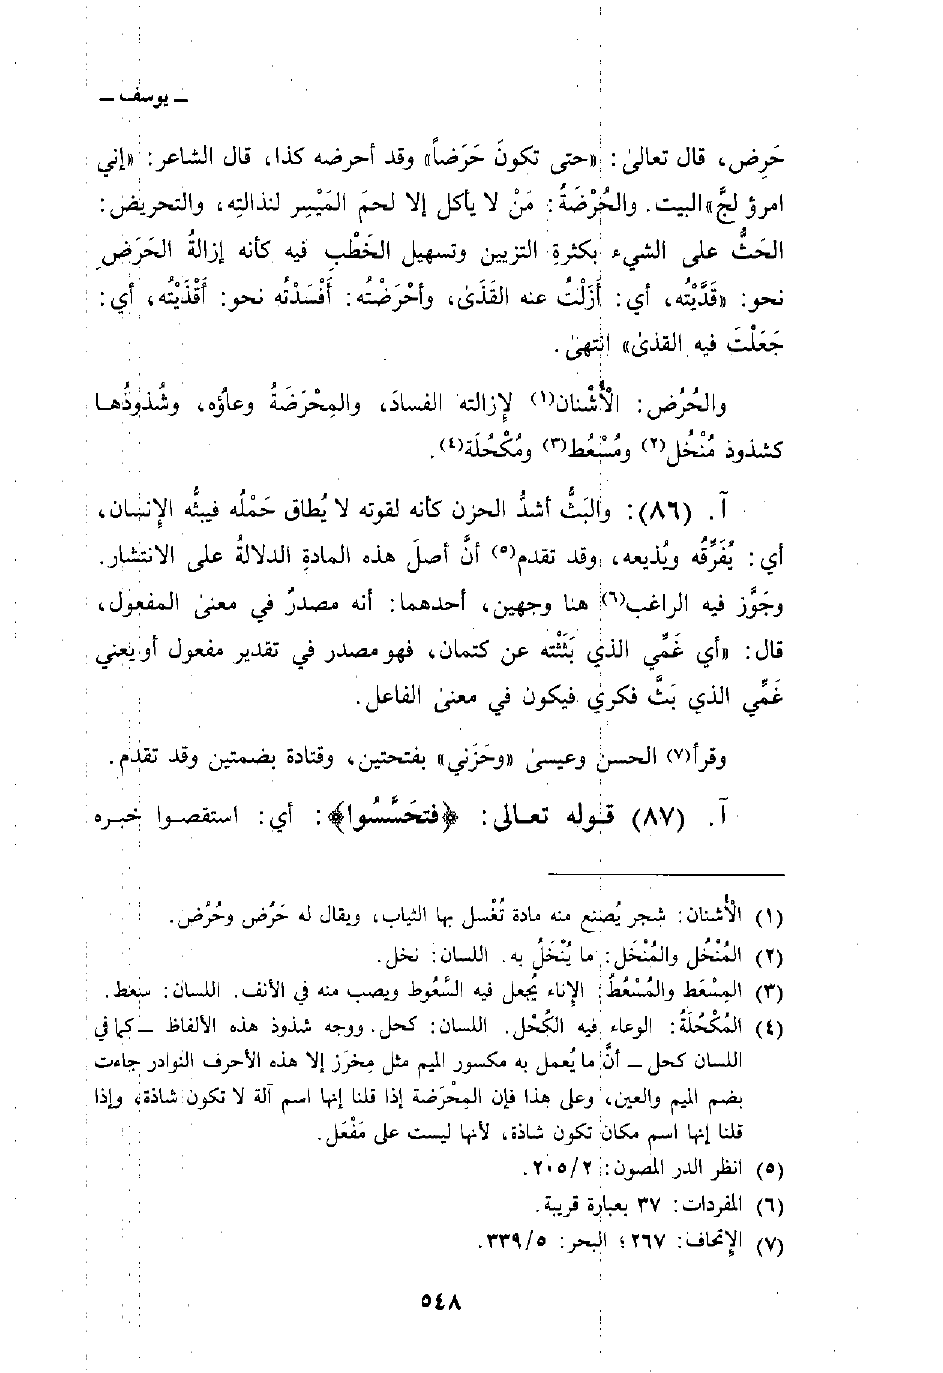 ــ يوسف ــ
حَرِض، قال تعالىٰ: «حتى تكونَ حَرَضاً» وقد أحرضه كذا، قال الشاعر: «إني
امرؤ لجَّ» البيت. والحُرْضَةُ: مَنْ لا يأكل إلا لحمَ المَيْسِر لنذالتِه، والتحريض:
الحَثُّ على الشيء بكثرةِ التزيين وتسهيل الخَطْبِ فيه كأنه إزالةُ الحَرَض
نحو: «قَذَّيْتُه، أي: أَزَلْتُ عنه القَذَىٰ، وأَحْرَضْتُه: أَفْسَدْتُه نحو: أَقْذَيْتُه، أي:
جَعَلْتَ فيه القذىٰ» انتهىٰ.
والحُرُض: الأُشْنان(١) لإزالته الفسادَ، والمِحْرَضَةُ وعاؤه، وشُذوذُها
كشذوذ مُنْخُل(٢) ومُسْعُط(٣) ومُكْحُلَة(٤).
آ. (٨٦): والبَثُّ أشدُّ الحزن كأنه لقوته لا يُطاق حَمْلُه فيبثُّه الإنسان،
أي: يُفَرِّقُه ويُذيعه، وقد تقدم(٥) أنَّ أصلَ هذه المادةِ الدلالةُ على الانتشار.
وجَوَّز فيه الراغب(٦) هنا وجهين، أحدهما: أنه مصدرٌ في معنىٰ المفعول،
قال: «أي غَمِّي الذي بَثَثْتُه عن كتمان، فهو مصدر في تقدير مفعول أو يعني
غَمِّي الذي بَثَّ فكري فيكون في معنىٰ الفاعل.
وقرأ(٧) الحسن وعيسىٰ «وحَزَني» بفتحتين، وقتادة بضمتين وقد تقدَّم.
آ. (٨٧) قوله تعالى: ﴿فتحَسَّسُوا﴾: أي: استقصوا خبره
(١) الأُشنان: شجر يُصنع منه مادة تُغْسل بها الثياب، ويقال له حَرُض وحُرُض.
(٢) المُنْخُل والمُنْخَل: ما يُنْخَلُ به. اللسان: نخل.
(٣) المِسْعَط والمُسْعُطُ: الإناء يُجعل فيه السَّعُوط ويصب منه في الأنف. اللسان: سعط.
(٤) المُكْحُلَةُ: الوعاء فيه الكُحْل. اللسان: كحل. ووجه شذوذ هذه الألفاظ ــ كما في
اللسان كحل ــ أنَّ ما يُعمل به مكسور الميم مثل مِخرَز إلا هذه الأحرف النوادر جاءت
بضم الميم والعين، وعلى هذا فإن المِحْرَضة إذا قلنا إنها اسم آلة لا تكون شاذة، وإذا
قلنا إنها اسم مكان تكون شاذة، لأنها ليست على مَفْعَل.
(٥) انظر الدر المصون: ٢٠٥/٢.
(٦) المفردات: ٣٧ بعبارة قريبة.
(٧) الإتحاف: ٢٦٧؛ البحر: ٣٣٩/٥.
٥٤٨